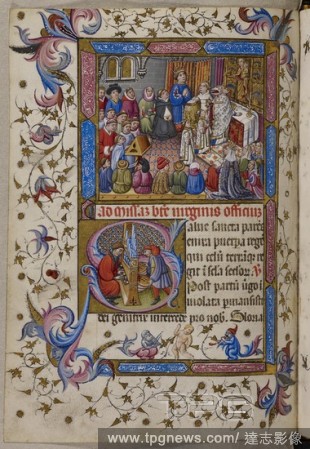 ad missaz bte virginis officiuz
alue sancta parēs
enixa puerpa rege
qui celū terrāq; re
git ī sela seclor. ℣
Post partū ūgo i
violata pmansisti
dei genitrix intercede pro nob. Gloria
TPG
www.tpgnews.com/達志影像